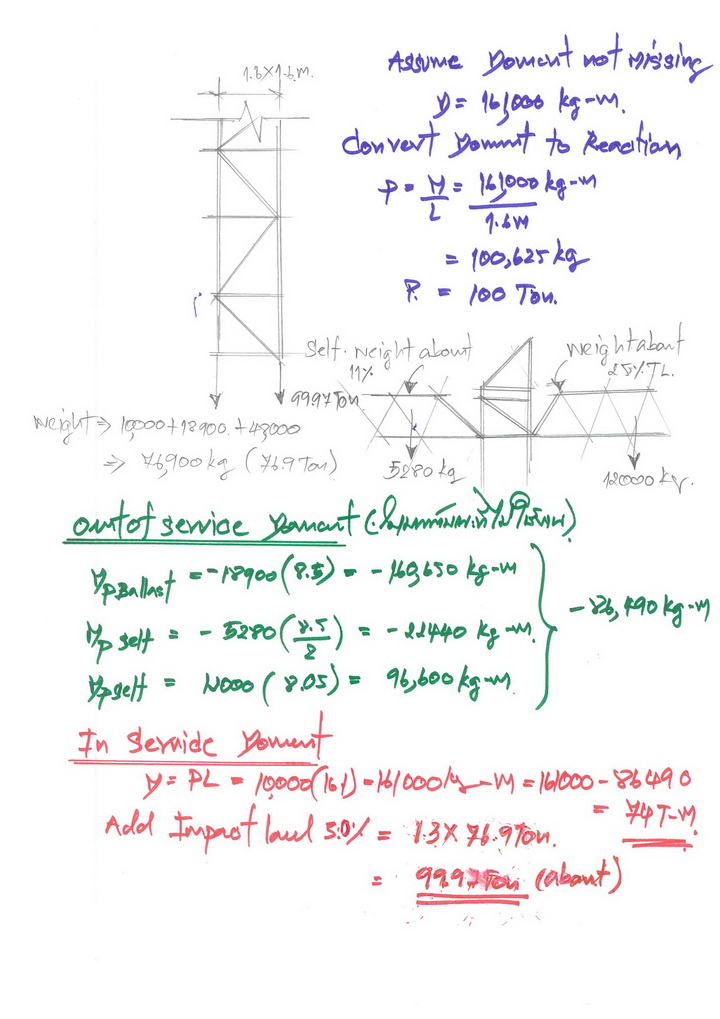 1.6 X 1.6 M.
Assume Moment not Missing
M = 161,000 kg-M.
Convert Moment to Reaction
P = M/L = 161,000 kg-M / 1.6M
= 100,625 kg
P. = 100 Ton.
Self-weight about
11%
weight about
25% TL.
99.97 Ton
5280 kg
12000 kg.
weight ⇒ 10,000 + 18900. + 48,000
⇒ 76,900 kg (76.9 Ton)
out of service Moment
Mp Ballast = -18900 (8.5) = -160,650 kg-M
Mp self = -5280 (8.5/2) = -22440 kg-M.
Mp self = 12000 (8.05) = 96,600 kg-M
-86,490 kg-M
In Service Moment
M = PL = 10,000 (16.1) = 161000 kg-M = 161000 - 86490
= 74 T-M.
Add Impact 30% = 1.3 X 76.9 Ton.
= 99.97 Ton (about)